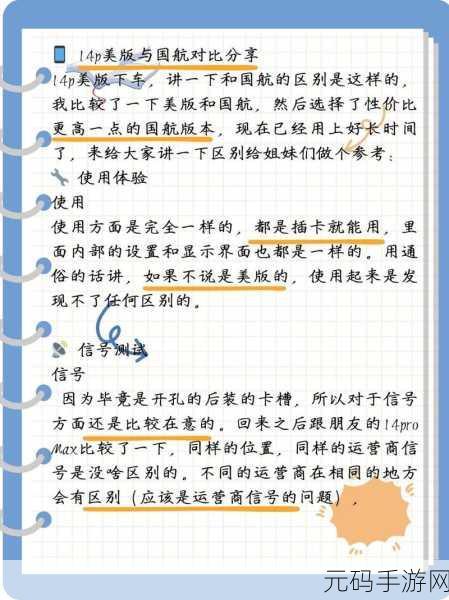 📱 14p美版与国航对比分享
14p美版下车，讲一下和国航的区别是这样的，
我比较了一下美版和国航，然后选择了性价比
更高一点的国航版本，现在已经用上好长时间
了，来给大家讲一下区别给姐妹们做个参考：
🔧 使用体验
使用
使用方面是完全一样的，都是插卡就能用，里
面内部的设置和显示界面也都是一样的。用通
俗的话讲，如果不说是美版的，使用起来是发
现不了任何区别的。
📡 信号测试
信号
因为毕竟是开孔的后装的卡槽，所以对于信号
方面还是比较在意的。回来之后跟朋友的14pro
Max比较了一下，同样的位置，同样的运营商信
号是没啥区别的。不同的运营商在相同的地方
会有区别（应该是运营商信号的问题），
元码手游网